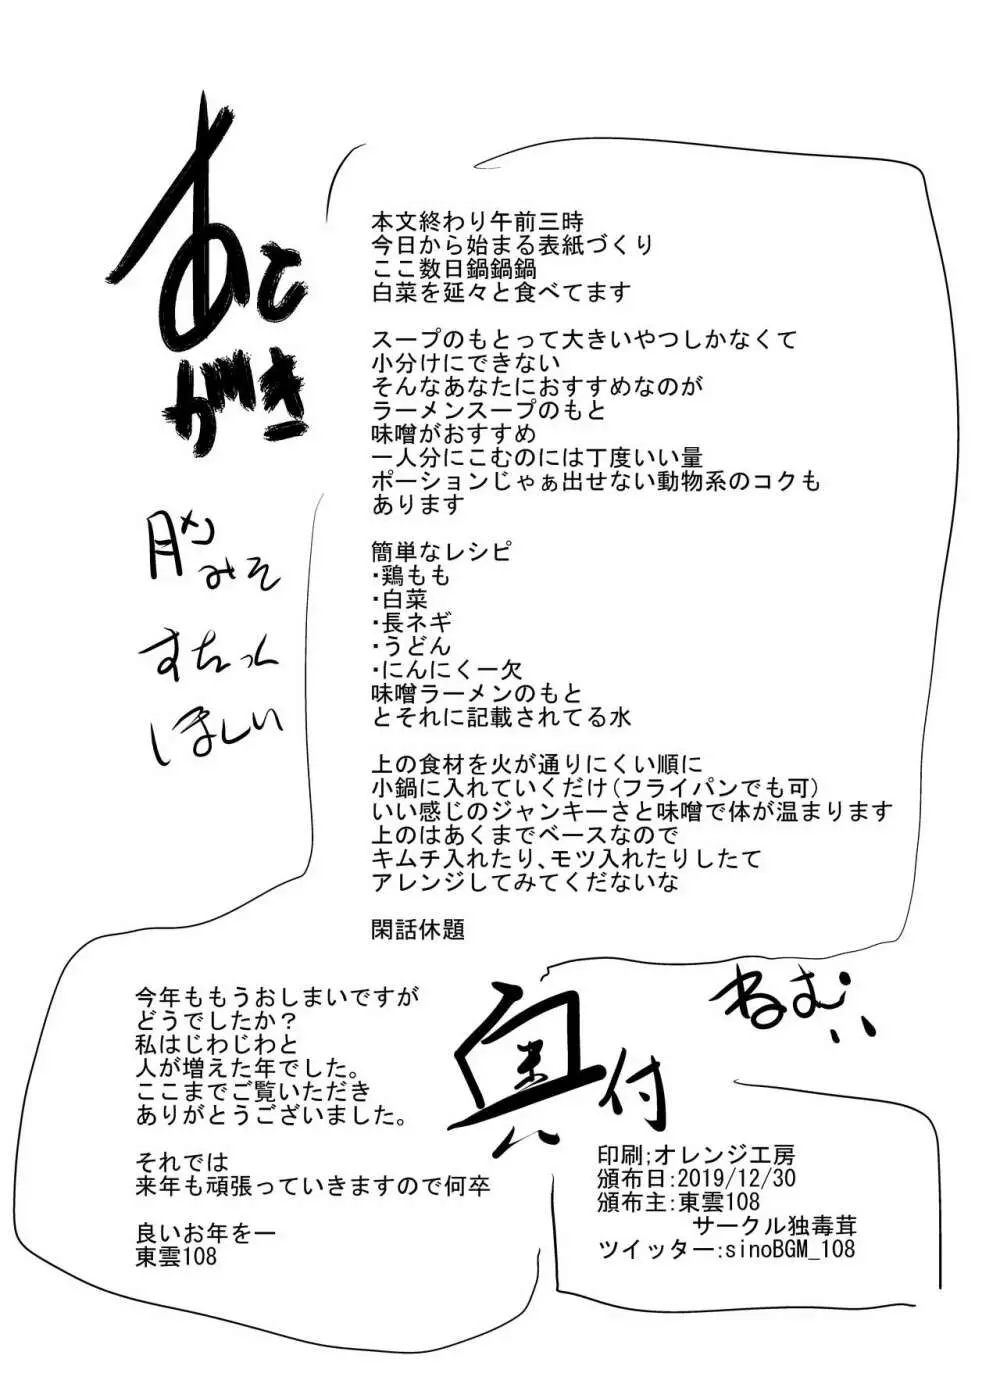 あとがき
本文終わり午前三時
今日から始まる表紙づくり
ここ数日鍋鍋鍋
白菜を延々と食べてます
スープのもとって大きいやつしかなくて
小分けにできない
そんなあなたにおすすめなのが
ラーメンスープのもと
味噌がおすすめ
一人分にこむのには丁度いい量
ポーションじゃぁ出せない動物系のコクも
あります
簡単なレシピ
・鶏もも
・白菜
・長ネギ
・うどん
・にんにく一欠
味噌ラーメンのもと
とそれに記載されてる水
上の食材を火が通りにくい順に
小鍋に入れていくだけ(フライパンでも可)
いい感じのジャンキーさと味噌で体が温まります
上のはあくまでベースなので
キムチ入れたり、モツ入れたりしたて
アレンジしてみてくだないな
閑話休題
みそ
すちっく
ほしい
ねむい
今年ももうおしまいですが
どうでしたか？
私はじわじわと
人が増えた年でした。
ここまでご覧いただき
ありがとうございました。
それでは
来年も頑張っていきますので何卒
良いお年をー
東雲108
奥付
印刷;オレンジ工房
頒布日:2019/12/30
頒布主:東雲108
サークル独毒茸
ツイッター:sinoBGM_108